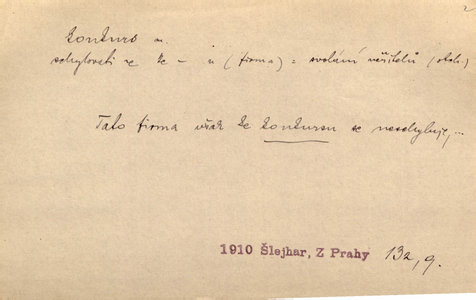 2
konkurs m.
schylovati se ke – u (firma) = svolání věřitelů (obch.)
Tato firma však ke konkursu se neschyluje, ...
1910 Šlejhar, Z Prahy 132, 9.